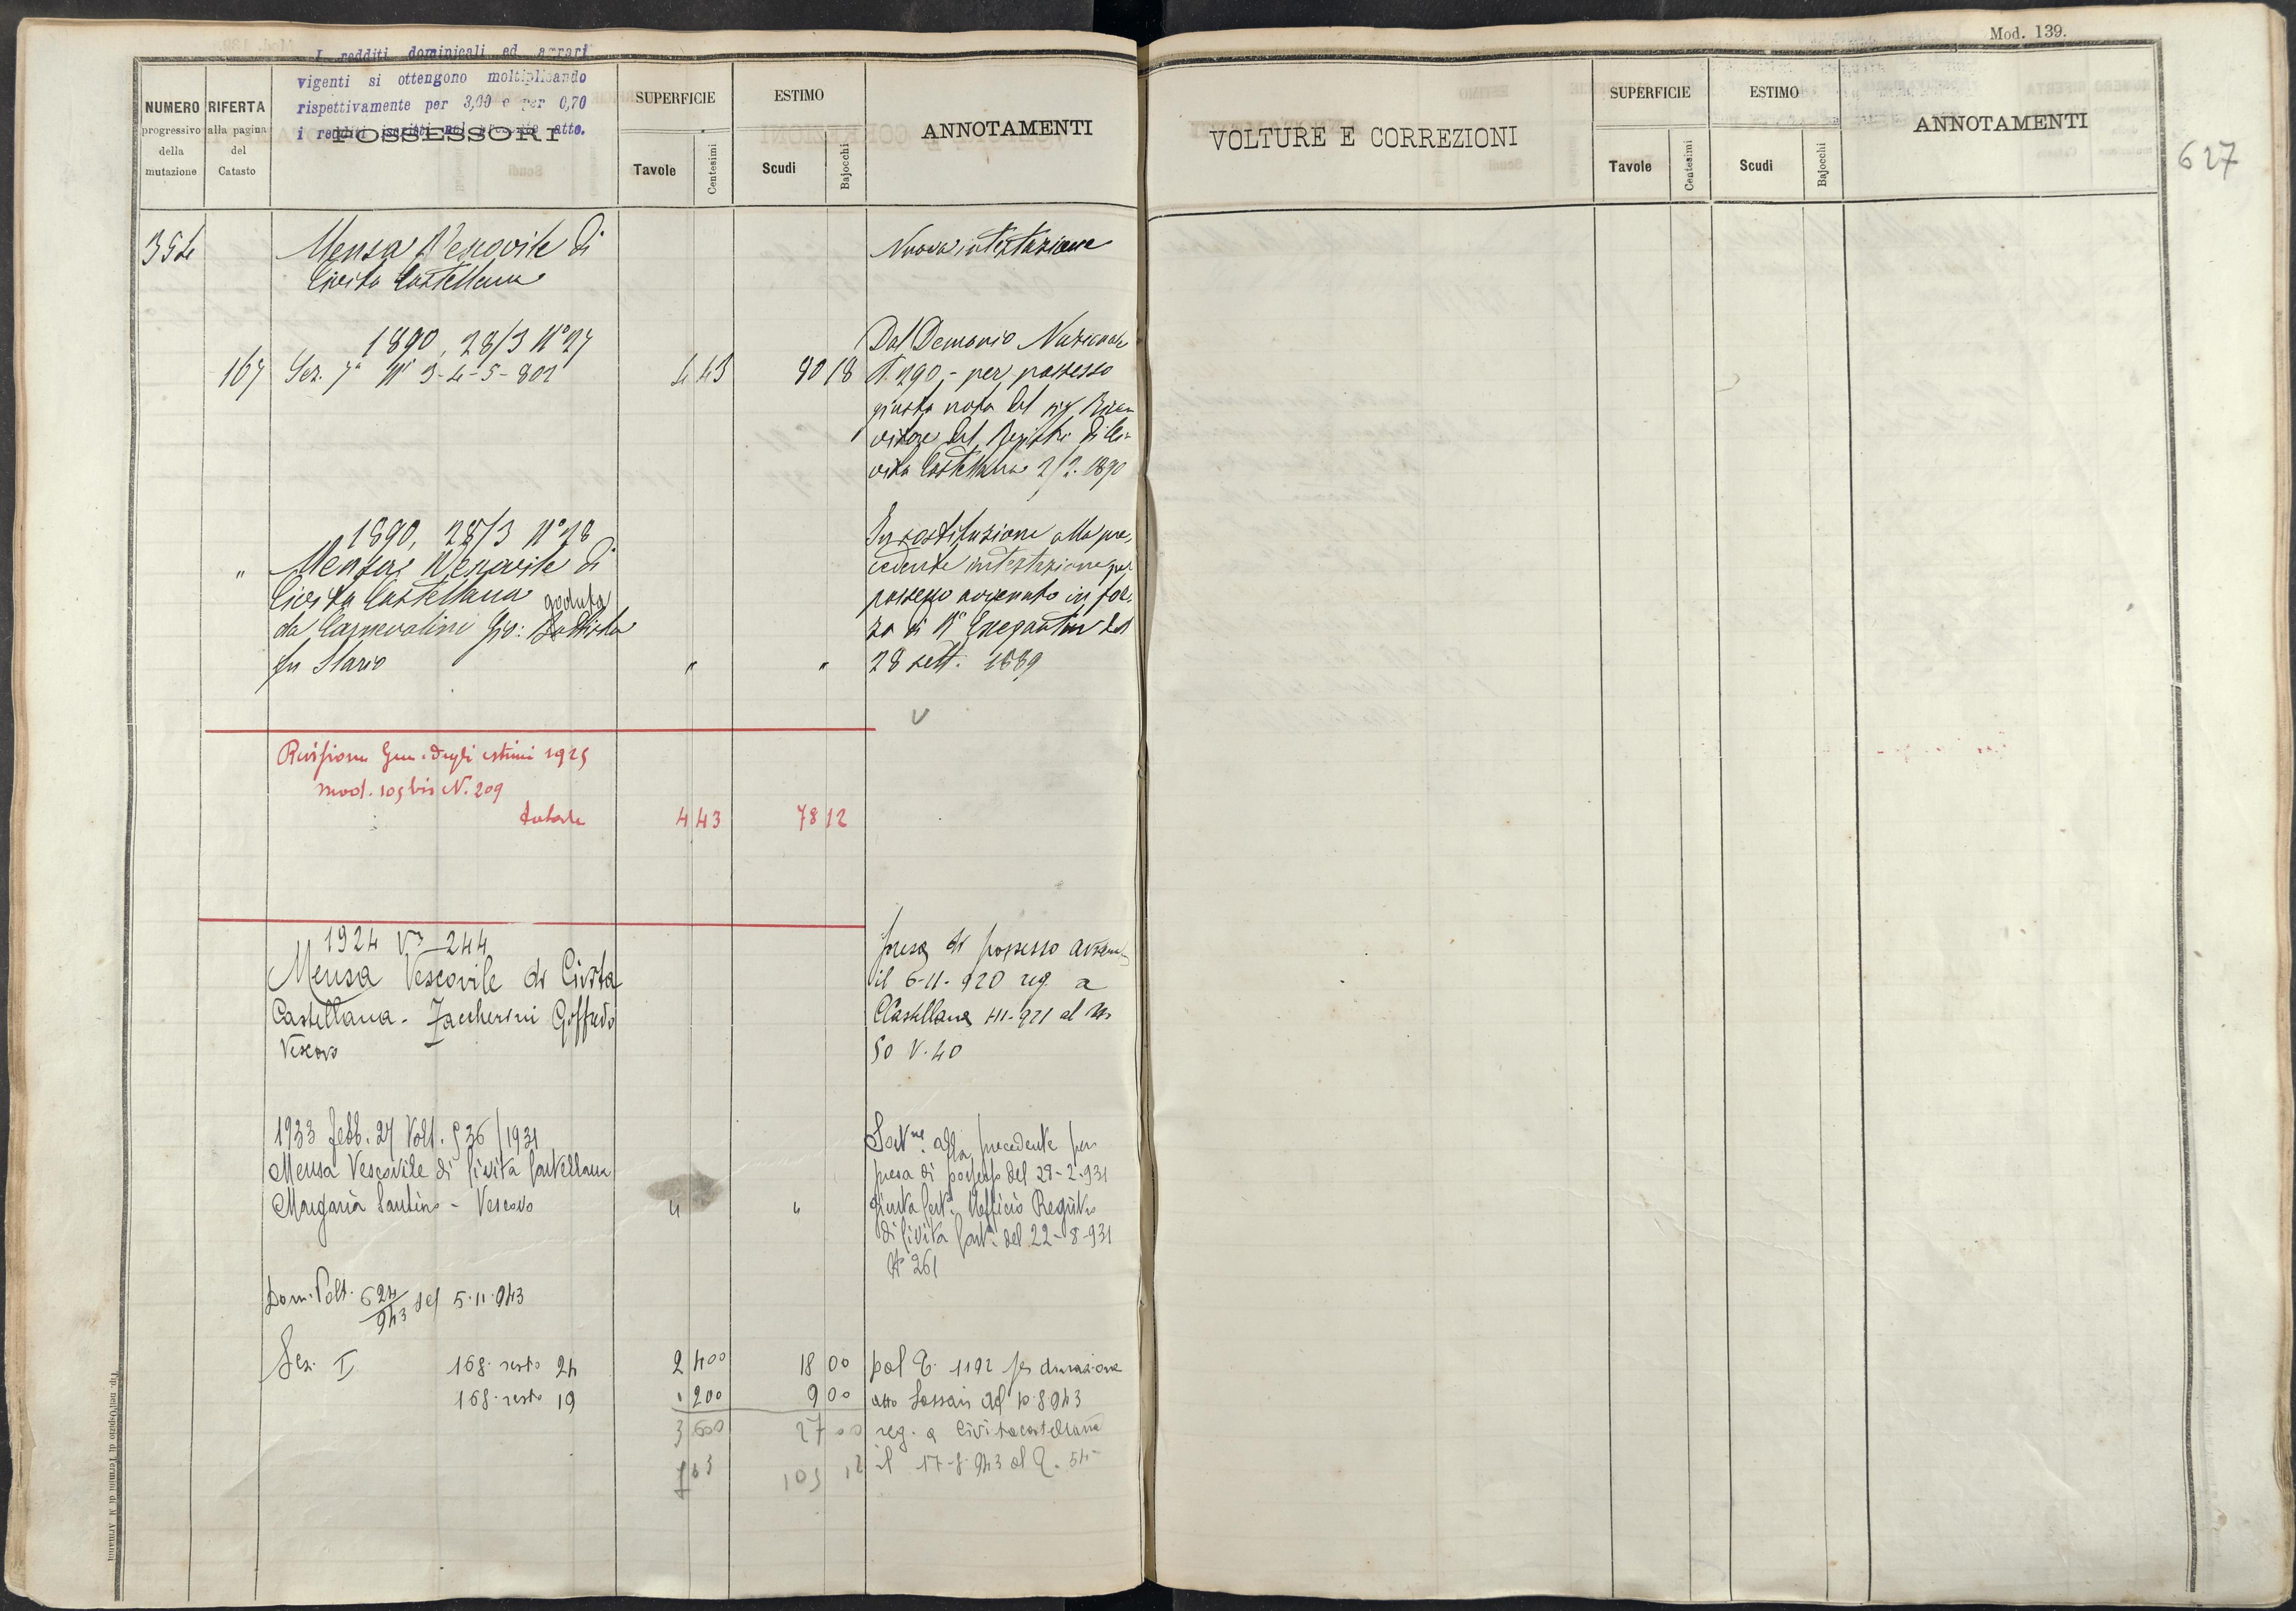 Mod. 139.
627
I redditi dominicali ed agrari
vigenti si ottengono moltiplicando
rispettivamente per 3,00 e per 0,70
i redditi iscritti nel atto.
NUMERO progressivo della mutazione
RIFERTA alla pagina del Catasto
POSSESSORI
SUPERFICIE
Tavole Centesimi
ESTIMO
Scudi Bajocchi
ANNOTAMENTI
VOLTURE E CORREZIONI
SUPERFICIE
Tavole Centesimi
ESTIMO
Scudi Bajocchi
ANNOTAMENTI
354 Mensa Vescovile di Nuova intestazione
Civita Castellana
1890, 28/3 N° 27 Dal Demanio Nazionale
167 Sez. 7a Ni 3-4-5-802 4 43 80 18 T. 290,- per possesso
giusta nota del sig Rice
vitore del Registro di Ci-
vita Castellana 2/2. 1890
1890, 28/3 N° 28 In sostituzione alla pre,
" Mensa Vescovile di cedente intestazione per
Civita Castellana goduta possesso avvenuto in for,
da Carnevalini Gio: Battista za di R° Exequatur del
fu Ilario " " 28 sett. 1889
V
Revisione Gen. degli estimi 1925
mod. 105 bis N. 209
totale 4 43 78 12
1924 Va 244 presa di possesso
Mensa Vescovile di Civita il 6-11-920 reg. a
Castellana. Zaccherini Goffredo CCastellana al N.
Vescovo 50 V. 40
1933 febb. 27 Volt. 536/1931 alla precedente per
Mensa Vescovile di Civita Castellana presa di possesso del 29-2-931
Margaria Santino - Vescovo " " giusta Cert. Ufficio Registro
di Civita Cast. del 22-8-931
N° 261
Dom. Volt. 624/943 del 5.11.943
Sez. I 168 resto 24 2 400 18 00 dal 1192 per donazione
168 resto 19 1 200 9 00 atto del 10.8.943
3 600 27 00 reg. a Civitacastellana
103 12 il 17-8-943 al 54
Tip. nell'Ospizio di Termini di M. Armanni